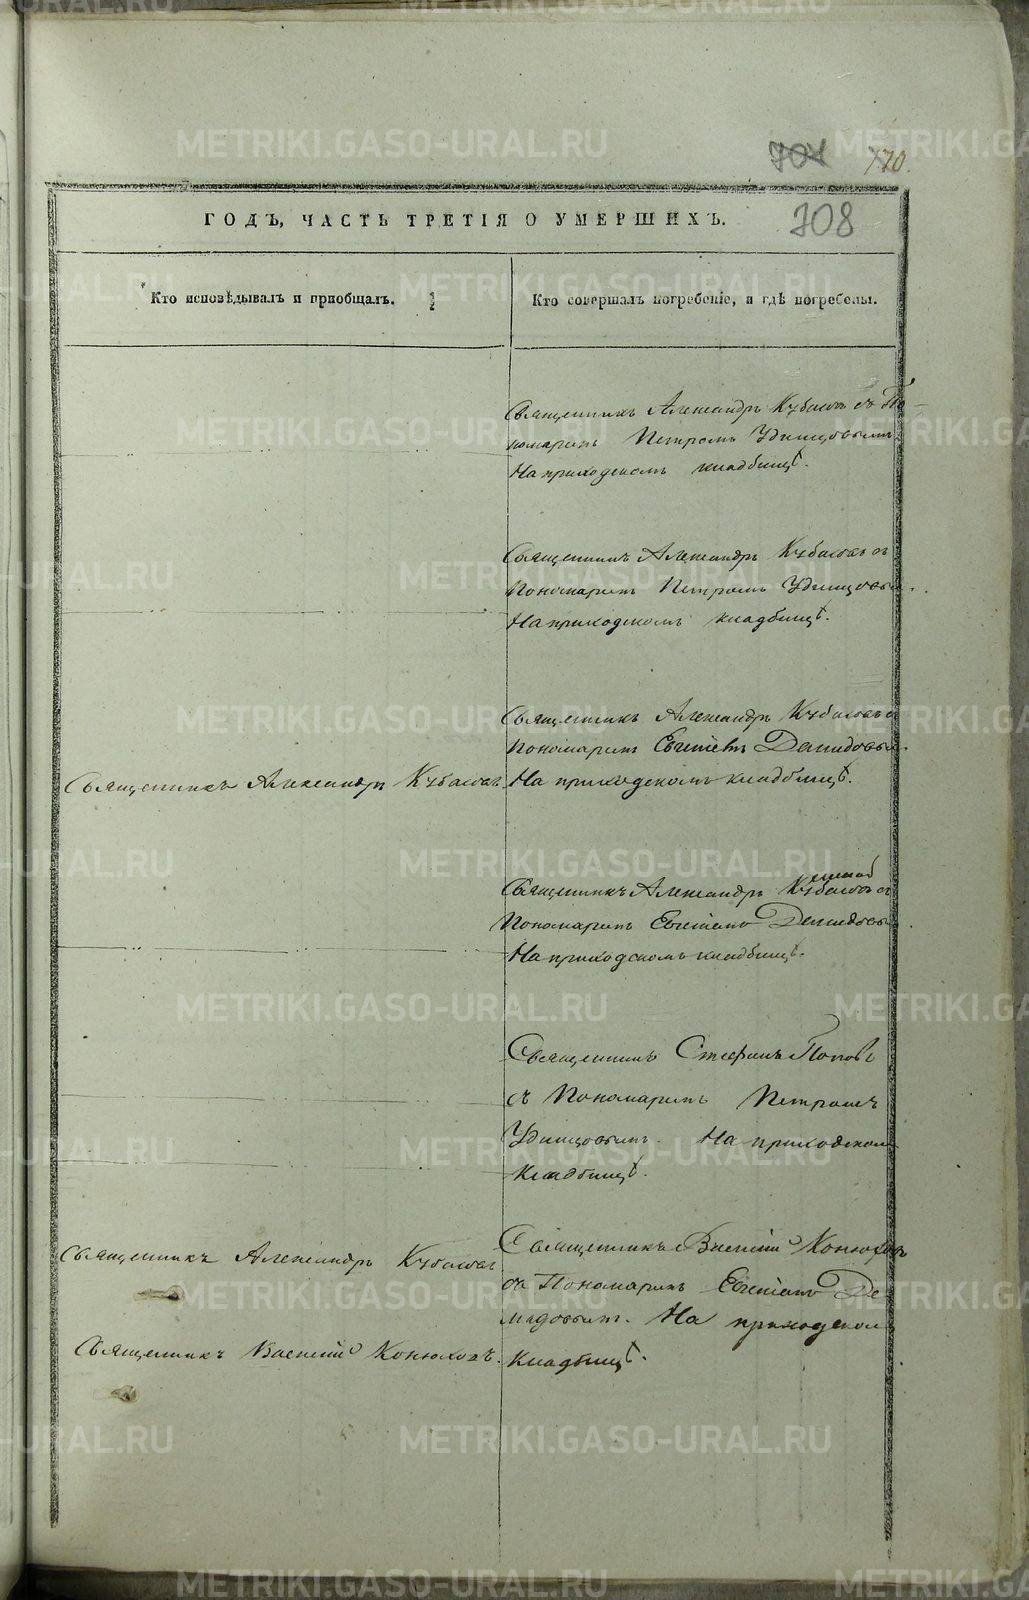 704 770.
ГОДЪ, ЧАСТЬ ТРЕТІЯ О УМЕРШИХЪ. 708
Кто исповѣдывалъ и пріобщалъ.
Кто совершалъ погребеніе, и гдѣ погребены.
Священникъ Александръ Кубасовъ съ По-
номаремъ Петромъ Удинцовымъ
На приходскомъ кладбищѣ.
Священникъ Александръ Кубасовъ съ
Пономаремъ Петромъ Удинцовы
На приходскомъ кладбищѣ.
Священникъ Александръ Кубасовъ с
Пономаремъ Демидовы
Священникъ Александръ Кубасовъ
На приходскомъ кладбищѣ.
Священникъ Александръ Кубасовъ съ
Пономаремъ Демидовы
На приходскомъ кладбищѣ.
Священникъ Стефанъ Поповъ
съ Пономаремъ Петромъ
Удинцовымъ. На приходском
кладбищѣ.
Священникъ Александръ Кубасовъ
Священникъ Василій Конюховъ
съ Пономаремъ Де-
мидовымъ. На приходском
Священникъ Василій Конюховъ.
Кладбищѣ.
METRIKI.GASO-URAL.RU